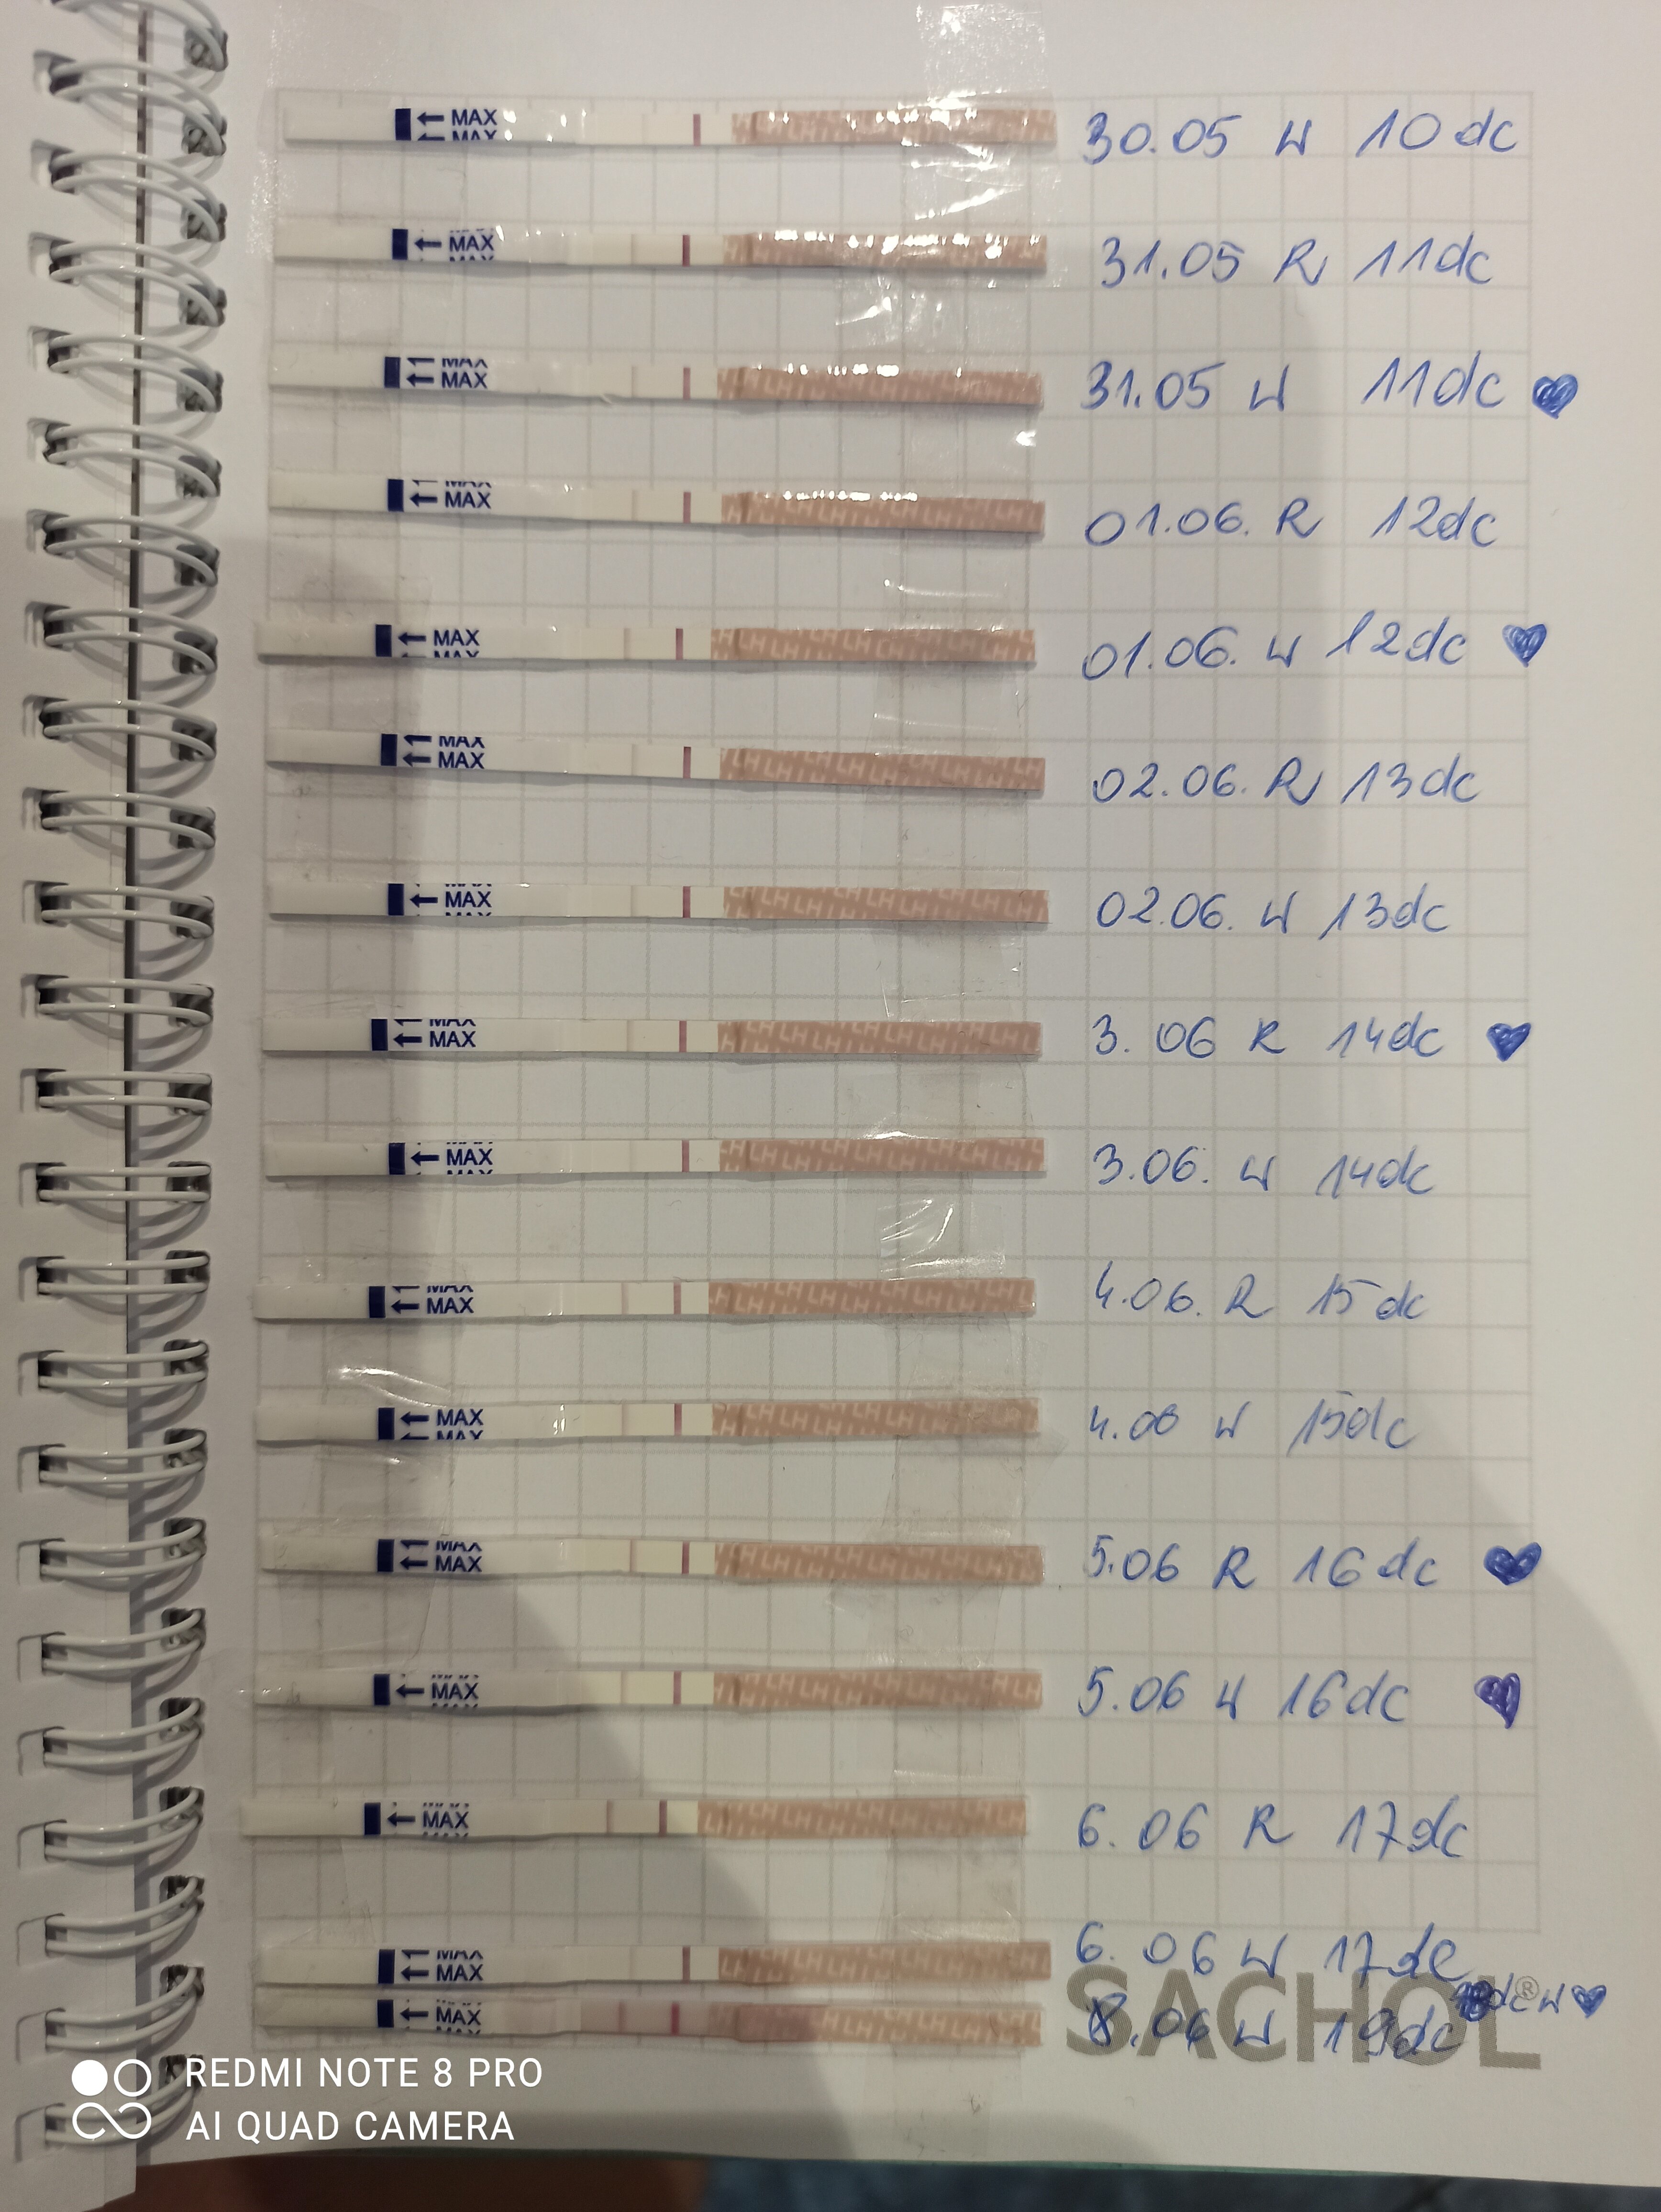 ← MAX 30.05 W 10dc
← MAX 31.05 R 11dc
← MAX 31.05 W 11dc
← MAX 01.06. R 12dc
← MAX 01.06. W 12dc
← MAX 02.06. R 13dc
← MAX 02.06. W 13dc
← MAX 3.06 R 14dc
← MAX 3.06. W 14dc
← MAX 4.06. R 15dc
← MAX 4.06 W 15dc
← MAX 5.06 R 16dc
← MAX 5.06 W 16dc
← MAX 6.06 R 17dc
← MAX 6.06 W 17dc
← MAX 8.06 W 19dc
SACHOL®
REDMI NOTE 8 PRO
AI QUAD CAMERA